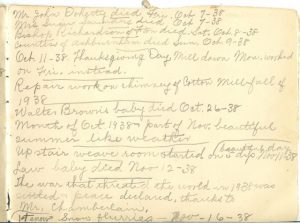 Mr. John Doherty died, Fri. Oct 7-38
Mrs. died, Oct 7-38
Bishop Richardson of Fton died, Sat. Oct. 8-38
Countess of Ashburnham died Sun. Oct 9-38
Oct 11-38 Thanksgiving Day, Mill down Mon. worked
on Fri. instead.
Repair work on chimney of Cotton Mill fall of
1938
Walter Brown's baby died Oct. 26-38
Month of Oct 1938 & part of Nov. beautiful
summer like weather
Upstair weave room started on 2 day Nov 11/38
Law baby died Nov-12-38
The war that threated the world in 1938 was
settled, peace declared, thanks to
Mr. Chamberlain,
Snow flurries - Nov-16-38